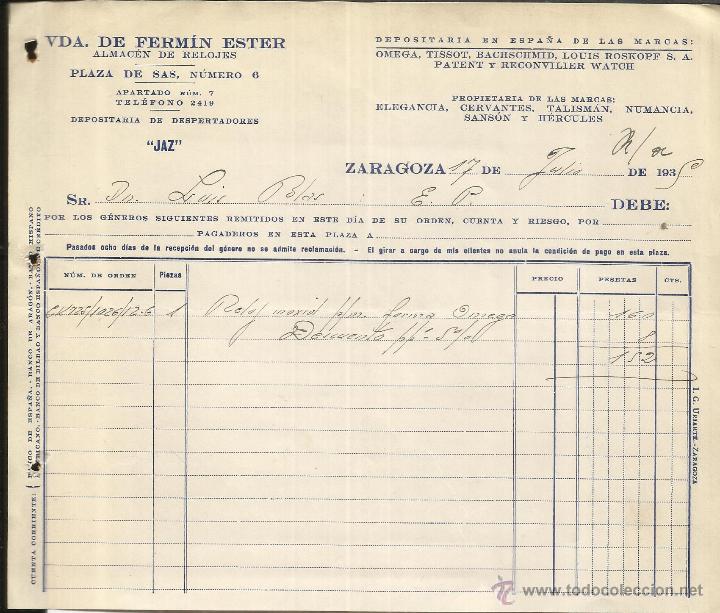 VDA. DE FERMÍN ESTER
ALMACÉN DE RELOJES
PLAZA DE SAS, NÚMERO 6
APARTADO NÚM. 7
TELÉFONO 2419
DEPOSITARIA DE DESPERTADORES
"JAZ"
DEPOSITARIA EN ESPAÑA DE LAS MARCAS:
OMEGA, TISSOT, BACHSCHMID, LOUIS ROSKOPF S. A.
PATENT Y RECONVILIER WATCH
PROPIETARIA DE LAS MARCAS:
ELEGANCIA, CERVANTES, TALISMÁN, NUMANCIA,
SANSÓN Y HÉRCULES
ZARAGOZA 17 DE Julio DE 1935
SR. Dn. Luis Blas E. P. DEBE:
POR LOS GÉNEROS SIGUIENTES REMITIDOS EN ESTE DÍA DE SU ORDEN, CUENTA Y RIESGO, POR
PAGADEROS EN ESTA PLAZA A
Pasados ocho días de la recepción del género no se admite reclamación. - El girar a cargo de mis clientes no anula la condición de pago en esta plaza.
NÚM. DE ORDEN Piezas PRECIO PESETAS CTS.
1 Reloj forma Omega 160
Descuento p/p 5% 8
152
CUENTA CORRIENTE:
BANCO DE ESPAÑA. - BANCO DE ARAGÓN. - BANCO HISPANO
AMERICANO. - BANCO DE BILBAO Y BANCO ESPAÑOL DE CRÉDITO
I. G. URIARTE.-ZARAGOZA
www.todocoleccion.net